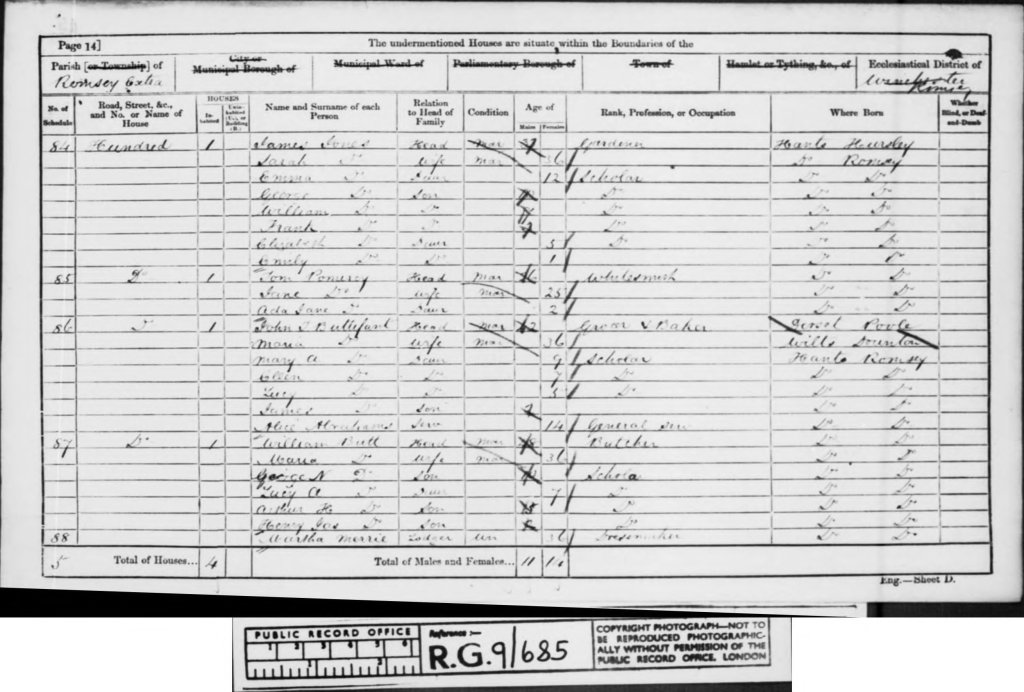 Page 14] The undermentioned Houses are situate within the Boundaries of the
Parish [or Township] of City or Municipal Borough of Municipal Ward of Parliamentary Borough of Town of Hamlet or Tything, &c., of Ecclesiastical District of
Romsey Extra Romsey
No. of Schedule Road, Street, &c., and No. or Name of House HOUSES Inhabited Uninhabited (U.), or Building (B.) Name and Surname of each Person Relation to Head of Family Condition Age of Males Females Rank, Profession, or Occupation Where Born Whether Blind, or Deaf-and-Dumb
84 Hundred 1 James Jones Head Mar Gardener Hants Hursley
Sarah Do Wife Mar 36 Do Romsey
Emma Do Daur 12 Scholar Do Do
George Do Son Do Do Do
William Do Do Do Do Do
Frank Do Do Do Do Do
Elizabeth Do Daur 5 Do Do Do
Emily Do Do 1 Do Do
85 Do 1 Tom Pomeroy Head Mar Whitesmith Do Do
Jane Do Wife Mar 25 Do Do
Ada Jane Do Daur 2 Do Do
86 Do 1 John Head Mar Grocer & Baker Dorset Poole
Maria Do Wife Mar 36 Wilts Downton
Mary A Do Daur 9 Scholar Hants Romsey
Ellen Do Do 7 Do Do Do
Lucy Do Do 5 Do Do Do
James Do Son Do Do
Alice Abrahams Serv 14 General Serv Do Do
87 Do 1 William Butt Head Mar Butcher Do Do
Maria Do Wife Mar 36 Do Do
George N Do Son Schola Do Do
Lucy A Do Daur 7 Do Do Do
Arthur H Do Son Do Do Do
Henry Jas Do Son Do Do Do
88 Martha Merrie Lodger Un 36 Dressmaker Do Do
5 Total of Houses... 4 Total of Males and Females... 11 14
Eng.—Sheet D.
PUBLIC RECORD OFFICE
1 2 3 4 5 6
1 2
Reference :—
R.G.9/685
COPYRIGHT PHOTOGRAPH—NOT TO
BE REPRODUCED PHOTOGRAPHIC-
ALLY WITHOUT PERMISSION OF THE
PUBLIC RECORD OFFICE, LONDON